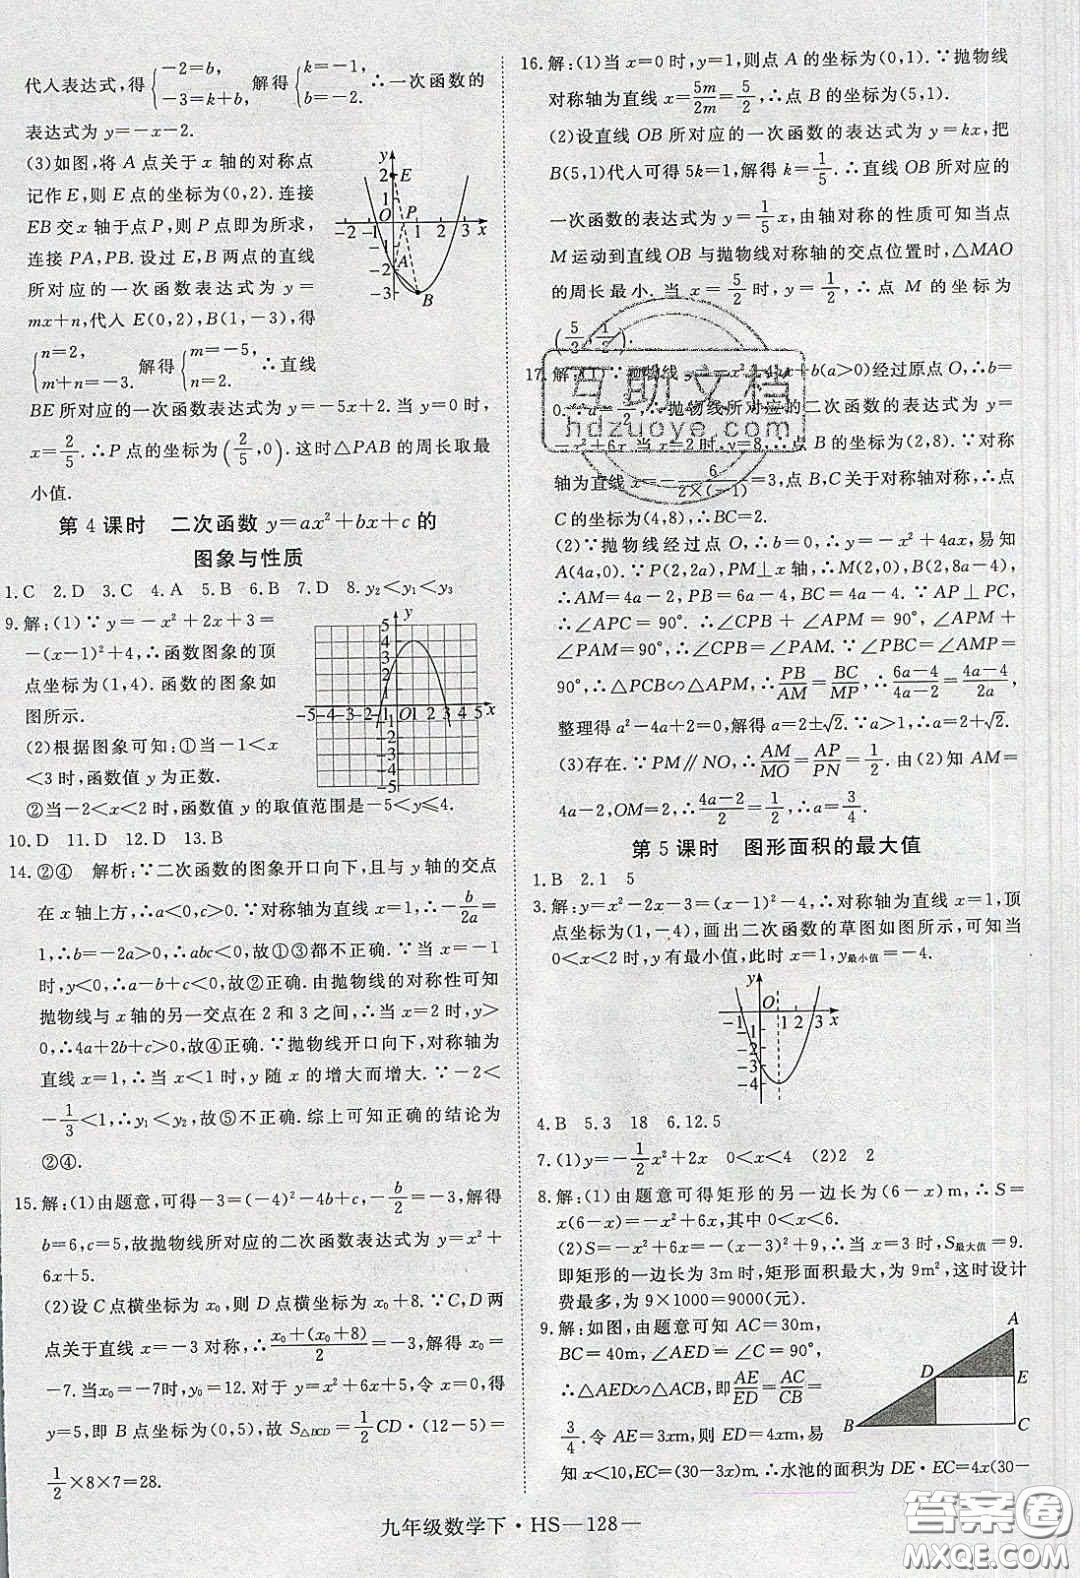 代入表达式,得{-2=b, -3=k+b, 解得{k=-1, b=-2. ∴一次函数的
表达式为 y=-x-2.
(3)如图,将 A 点关于 x 轴的对称点
记作 E,则 E 点的坐标为(0,2).连接
EB 交 x 轴于点 P,则 P 点即为所求,
连接 PA,PB.设过 E,B 两点的直线
所对应的一次函数表达式为 y=
mx+n,代入 E(0,2),B(1,-3),得
{n=2, m+n=-3. 解得{m=-5, n=2. ∴直线
BE 所对应的一次函数表达式为 y=-5x+2.当 y=0 时,
x=2/5.∴P 点的坐标为(2/5,0).这时△PAB 的周长取最
小值.
y
2
E
1
O
P
-2 -1 1 2 3 x
-1
-2
A
-3
B
第 4 课时 二次函数 y=ax²+bx+c 的
图象与性质
1.C 2.D 3.C 4.A 5.B 6.B 7.D 8.y₂<y₁<y₃
9.解:(1)∵y=-x²+2x+3=
-(x-1)²+4,∴函数图象的顶
点坐标为(1,4).函数的图象如
图所示.
(2)根据图象可知:①当-1<x
<3 时,函数值 y 为正数.
②当-2<x<2 时,函数值 y 的取值范围是-5<y≤4.
y
5
4
3
2
1
-5-4-3-2-1 O 1 2 3 4 5 x
-2
-3
-4
-5
10.D 11.D 12.D 13.B
14.②④ 解析:∵二次函数的图象开口向下,且与 y 轴的交点
在 x 轴上方,∴a<0,c>0.∵对称轴为直线 x=1,∴-b/2a=
1,∴b=-2a>0,∴abc<0,故①③都不正确.∵当 x=-1
时,y<0,∴a-b+c<0,故②正确.由抛物线的对称性可知
抛物线与 x 轴的另一交点在 2 和 3 之间,∴当 x=2 时,y>
0,∴4a+2b+c>0,故④正确.∵抛物线开口向下,对称轴为
直线 x=1,∴当 x<1 时,y 随 x 的增大而增大.∵-2<
-1/3<1,∴y₁<y₂,故⑤不正确.综上可知正确的结论为
②④.
15.解:(1)由题意,可得-3=(-4)²-4b+c,-b/2=-3,解得
b=6,c=5,故抛物线所对应的二次函数表达式为 y=x²+
6x+5.
(2)设 C 点横坐标为 x₀,则 D 点横坐标为 x₀+8.∵C,D 两
点关于直线 x=-3 对称,∴x₀+(x₀+8)/2=-3,解得 x₀=
-7.当 x₀=-7 时,y₀=12.对于 y=x²+6x+5,令 x=0,得
y=5,即 B 点坐标为(0,5),故 S△BCD=1/2CD·(12-5)=
1/2×8×7=28.
16.解:(1)当 x=0 时,y=1,则点 A 的坐标为(0,1).∵抛物线
对称轴为直线 x=5m/2m=5/2,∴点 B 的坐标为(5,1).
(2)设直线 OB 所对应的一次函数的表达式为 y=kx,把
B(5,1)代入可得 5k=1,解得 k=1/5.∴直线 OB 所对应的
一次函数的表达式为 y=1/5x,由轴对称的性质可知当点
M 运动到直线 OB 与抛物线对称轴的交点位置时,△MAO
的周长最小.当 x=5/2 时,y=1/2,∴点 M 的坐标为
(5/2,1/2).
17.解:(1)∵抛物线 y=-x²+4ax+b(a>0)经过原点 O,∴b=
0.∵a=3/2,∴抛物线所对应的二次函数的表达式为 y=
-x²+6x.当 x=2 时,y=8,∴点 B 的坐标为(2,8).∵对称
轴为直线 x=-6/2×(-1)=3,点 B,C 关于对称轴对称,∴点
C 的坐标为(4,8),∴BC=2.
(2)∵抛物线经过点 O,∴b=0,∴y=-x²+4ax,易知
A(4a,0).∵P(2,2a),PM⊥x 轴,∴M(2,0),B(2,8a-4).
∴AM=4a-2,PM=2a,BC=4a-4,PB=6a-4.∵AP⊥PC,
∴∠APC=90°.∴∠CPB+∠APM=90°.∵∠APM+
∠PAM=90°,∴∠CPB=∠PAM.∵∠PBC=∠AMP=
90°,∴△PCB∽△APM,∴PB/AM=BC/MP,∴6a-4/4a-2=4a-4/2a,
整理得 a²-4a+2=0,解得 a=2±√2.∵a>1,∴a=2+√2.
(3)存在.∵PM∥NO,∴AM/MO=AP/PN=1/2.由(2)知 AM=
4a-2,OM=2,∴4a-2/2=1/2,∴a=3/4.
第 5 课时 图形面积的最大值
1.B 2.1 5
3.解:y=x²-2x-3=(x-1)²-4,∴对称轴为直线 x=1,顶
点坐标为(1,-4),画出二次函数的草图如图所示,可知当
0<x<2 时,y 有最小值,此时 x=1,y最小值=-4.
y
O
-1 1 2 3 x
-1
-2
-3
-4
4.B 5.3 18 6.12.5
7.(1)y=-1/2x²+2x 0<x<4 (2)2 2
8.解:(1)由题意可得矩形的另一边长为(6-x)m,∴S=
x(6-x)=-x²+6x,其中 0<x<6.
(2)S=-x²+6x=-(x-3)²+9,∴当 x=3 时,S最大值=9.
即矩形的一边长为 3m 时,矩形面积最大,为 9m²,这时设计
费最多,为 9×1000=9000(元).
9.解:如图,由题意可知 AC=30m,
BC=40m,∠AED=∠C=90°,
∴△AED∽△ACB,即AE/ED=AC/CB=
3/4.令 AE=3xm,则 ED=4xm,易
知 x<10,EC=(30-3x)m.∴水池的面积为 DE·EC=4x(30-
A
D
E
B
C
九年级数学下·HS—128—
互助文档
hdzuoye.com
答案圈
MXQE.COM